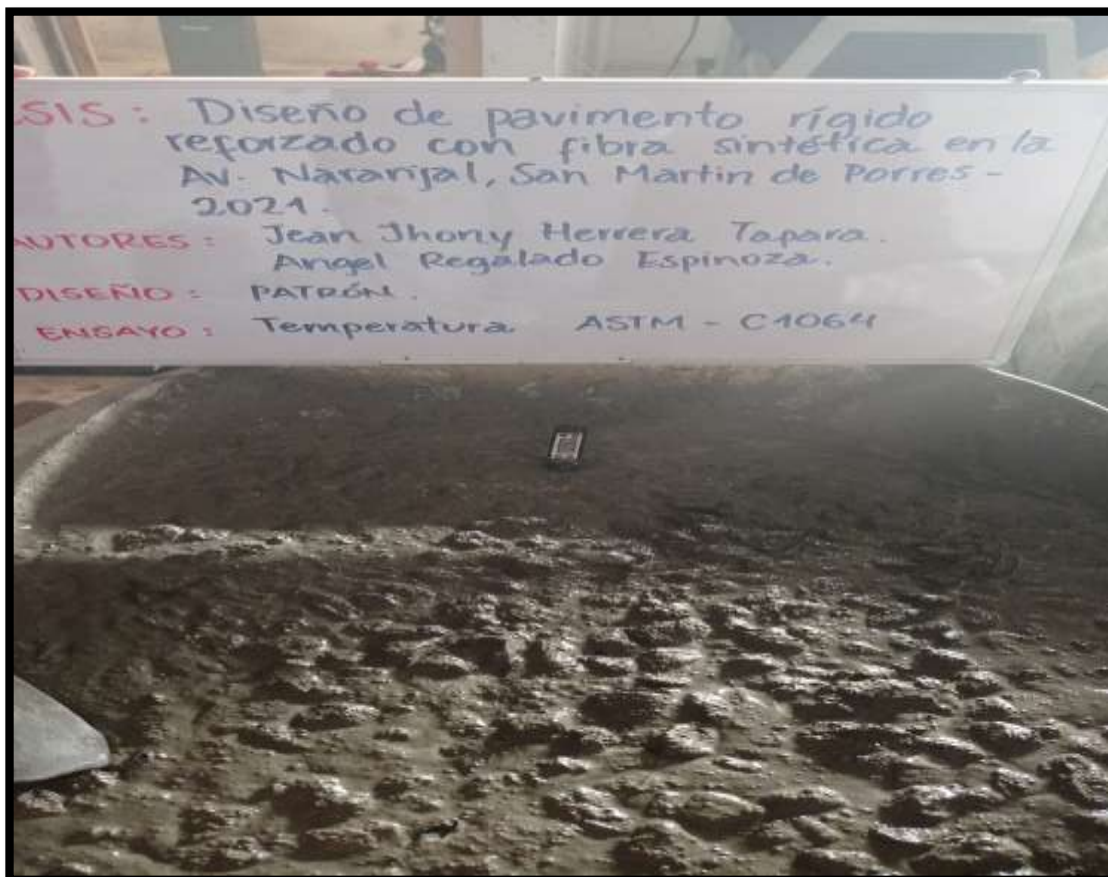 ESIS: Diseño de pavimento rígido
reforzado con fibra sintética en la
Av. Naranjal, San Martin de Porres -
2021.
AUTORES: Jean Jhony Herrera Tapara.
Angel Regalado Espinoza.
DISEÑO: PATRÓN.
ENSAYO: Temperatura ASTM - C1064